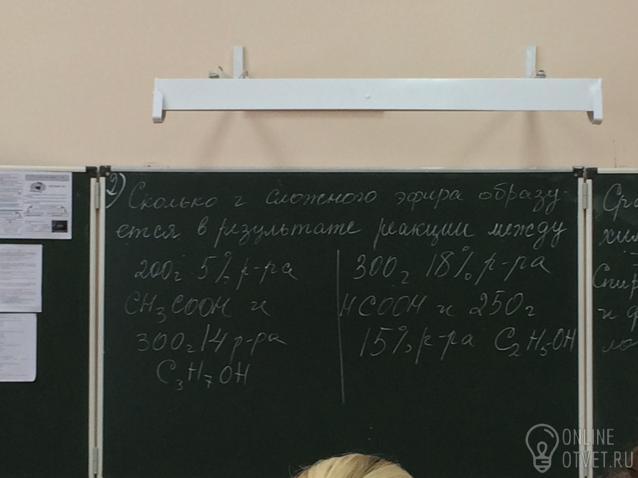 2) Сколько г сложного эфира образу-
ется в результате реакции между
200г 5% р-ра
CH3COOH и
300г 14 р-ра
C3H7OH
300г 18% р-ра
HCOOH и 250г
15% р-ра C2H5OH
Сра
хим
Спир
и ф
ло
ONLINE
OTVET.RU